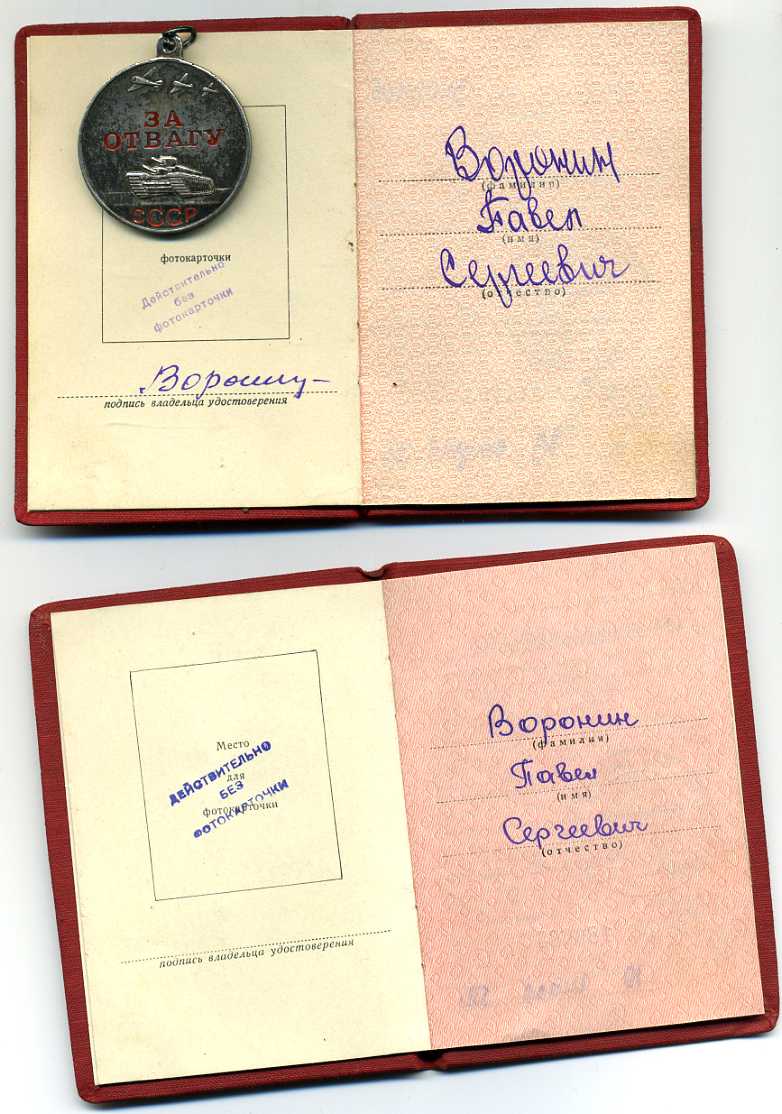 ЗА
ОТВАГУ
СССР
фотокарточки
Действительно
без
фотокарточки
подпись владельца удостоверения
Воронин
(фамилия)
Павел
(имя)
Сергеевич
(отчество)
Место
для
фотокарточки
ДЕЙСТВИТЕЛЬНО
БЕЗ
ФОТОКАРТОЧКИ
подпись владельца удостоверения
Воронин
(фамилия)
Павел
(имя)
Сергеевич
(отчество)